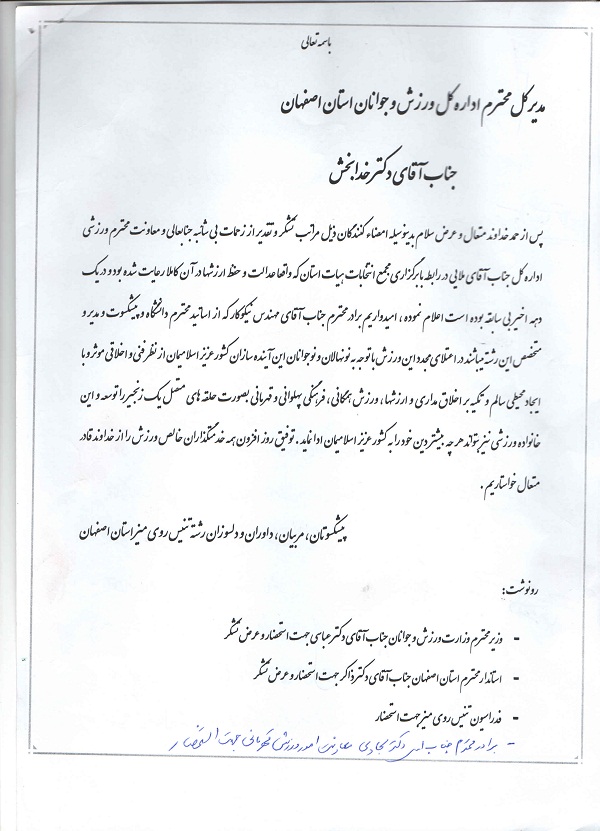 باسمه تعالی
مدیر کل محترم اداره کل ورزش و جوانان استان اصفهان
جناب آقای دکتر خدابخش
پس از حمد خداوند متعال و عرض سلام بدینوسیله امضاء کنندگان ذیل مراتب تشکر و تقدیر از زحمات بی شائبه جنابعالی و معاونت محترم ورزشی
اداره کل جناب آقای ملایی در رابطه با برگزاری مجمع انتخابات هیات استان که واقعا عدالت و حفظ ارزشها در آن کاملا رعایت شده بود و در یک
دهه اخیر بی سابقه بوده است اعلام نموده ، امیدواریم برادر محترم جناب آقای مهندس نیکوکار که از اساتید محترم دانشگاه و پیشکسوت و مدیر و
متخصص این رشته میباشند در اعتلای مجدد این ورزش با توجه به نونهالان و نوجوانان این آینده سازان کشور عزیز اسلامیمان از نظر فنی و اخلاقی موثر و با
ایجاد محیطی سالم و تکیه بر اخلاق مداری و ارزشها ، ورزش همگانی ، فرهنگی پهلوانی و قهرمانی بصورت حلقه های متصل یک زنجیر را توسعه و این
خانواده ورزشی نیز بتواند هر چه بیشتر دین خود را به کشور عزیز اسلامیمان ادا نماید . توفیق روز افزون همه خدمتگذاران خالص ورزش را از خداوند قادر
متعال خواستاریم .
پیشکسوتان ، مربیان ، داوران و دلسوزان رشته تنیس روی میز استان اصفهان
رونوشت :
- وزیر محترم وزارت ورزش و جوانان جناب آقای دکتر عباسی جهت استحضار و عرض تشکر
- استاندار محترم استان اصفهان جناب آقای دکتر ذاکر جهت استحضار و عرض تشکر
- فدراسیون تنیس روی میز جهت استحضار
- برادر محترم جناب آقای دکتر سجادی معاونت امور ورزش قهرمانی جهت استحضار